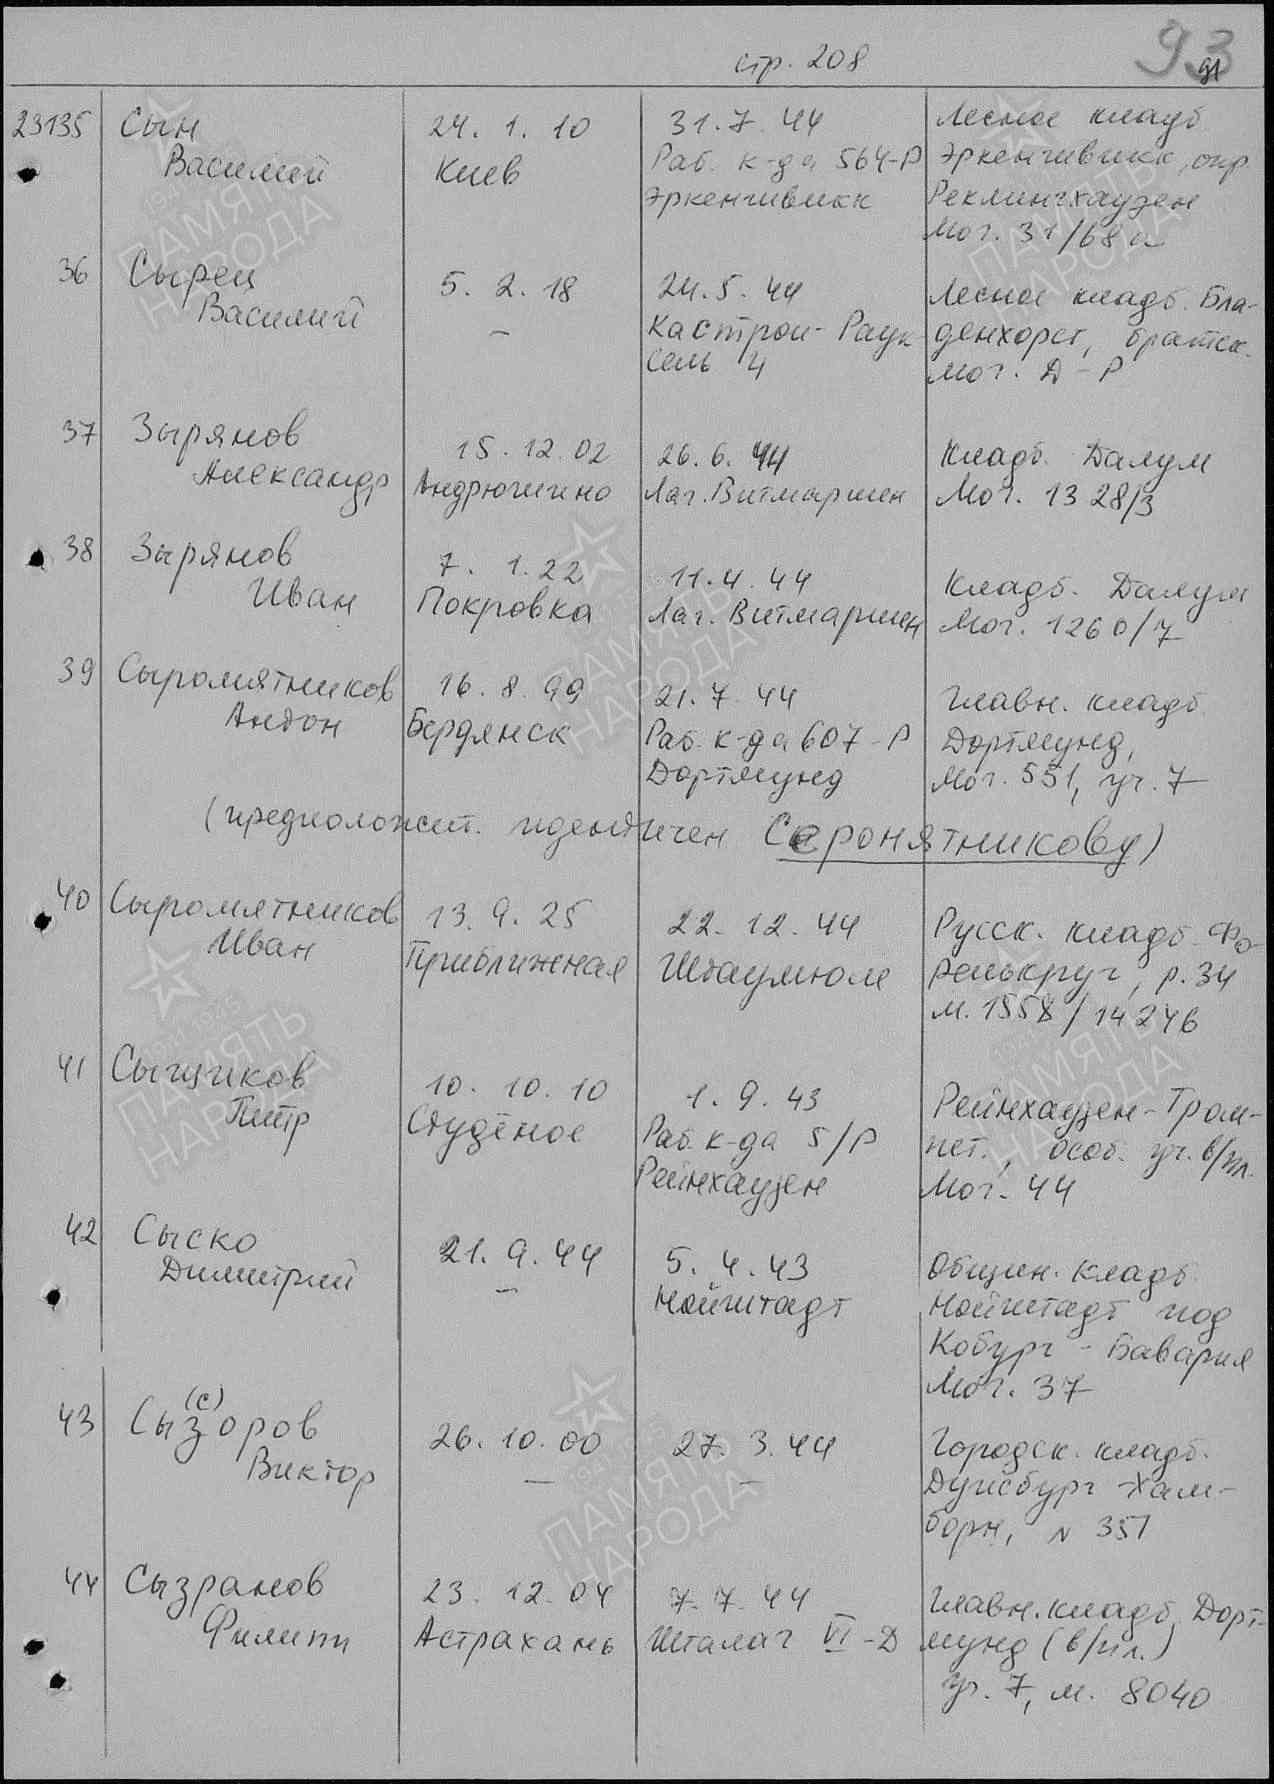 стр. 208
93
91
23135
Сын
Василий
24. 1. 10
Киев
31. 7. 44
Раб. к-да 564-Р
Эркеншвикк
Лесное кладб.
Эркеншвикк, окр.
Реклингхаузен
Мог. 31/68а
36
Сырец
Василий
5. 2. 18
—
24. 5. 44
Кастроп-Раук-
сель 4
Лесное кладб. Бла-
денхорст, братск.
мог. Д-Р
37
Зырянов
Александр
15. 12. 02
Андрюшино
26. 6. 44
Лаг. Витмаршен
Кладб. Далум
Мог. 1328/3
38
Зырянов
Иван
7. 1. 22
Покровка
11. 4. 44
Лаг. Витмаршен
Кладб. Далум
Мог. 1260/7
39
Сыромятников
Андон
16. 8. 99
Бердянск
21. 7. 44
Раб. к-да 607-Р
Дортмунд
Главн. кладб.
Дортмунд,
Мог. 551, уч. 7
(предположит. идентичен Серонятникову)
40
Сыромятников
Иван
13. 9. 25
Приближная
22. 12. 44
Штаумюле
Русск. кладб. Фо-
релькруг, р. 34
м. 1558/14246
41
Сыщиков
Петр
10. 10. 10
Студёное
1. 9. 43
Раб. к-да 5/Р
Рейнхаузен
Рейнхаузен-Тром-
пет., особ. уч. в/пл.
Мог. 44
42
Сыско
Димитрий
21. 9. 44
—
5. 4. 43
Нойштадт
Общин. кладб.
Нойштадт под
Кобург - Бавария
Мог. 37
43
(с)
Сызоров
Виктор
26. 10. 00
—
27. 3. 44
—
Городск. кладб.
Дуисбург-Хам-
борн, N 351
44
Сызранов
Филипп
23. 12. 04
Астрахань
7. 7. 44
Шталаг VI-Д
Главн. кладб. Дорт-
мунд (в/пл.)
уч. 7, м. 8040
1941 1945
ПАМЯТЬ
НАРОДА